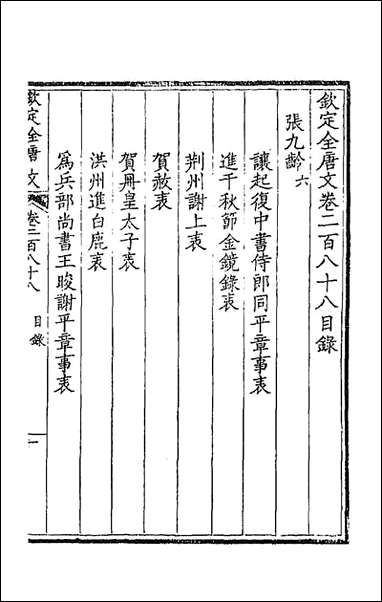 欽定全唐文卷二百八十八目錄
張九齡六
讓起復中書侍郎同平章事表
進千秋節金鏡錄表
荆州謝上表
賀赦表
賀冊皇太子表
洪州進白鹿表
為兵部尚書王晙謝平章事表
欽定全唐文 卷二百八十八 目錄 一